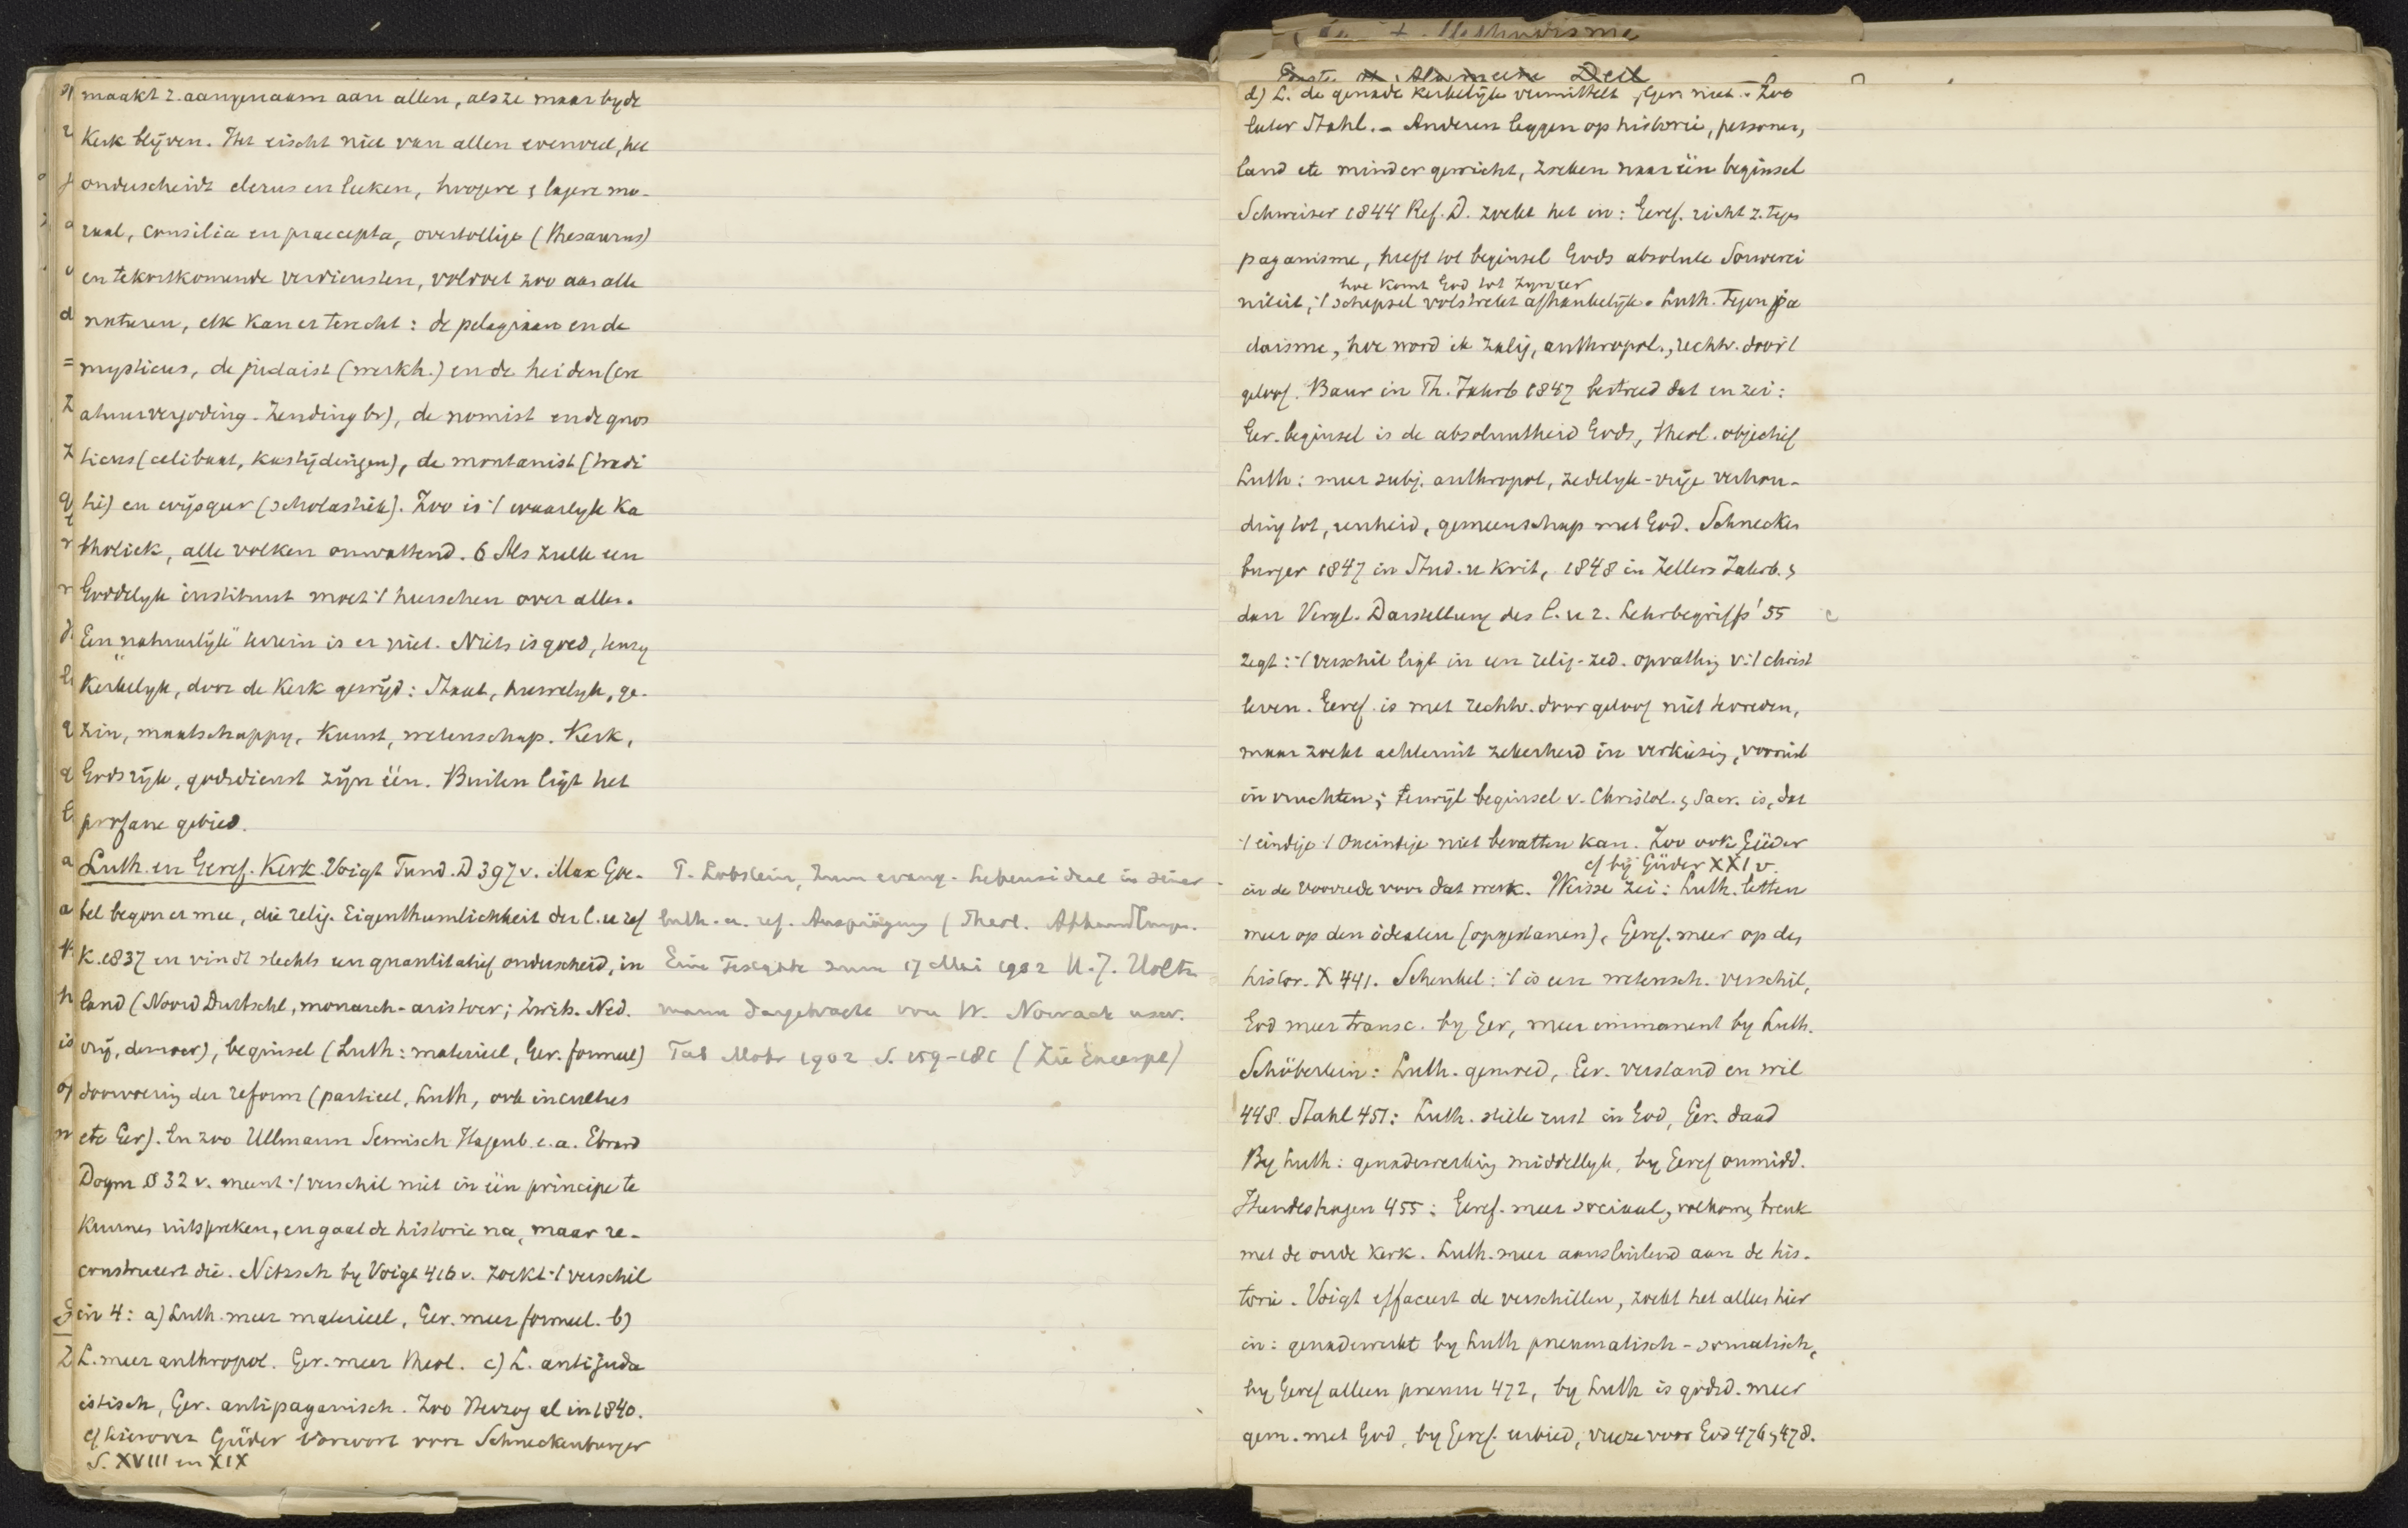 maakt z. aangenaam aan allen, als ze maar by de
Kerk blijven. Het eischt niet van allen evenveel, het
onderscheidt clerus en leeken, hoogere & lagere mo-
raal, consilia en praecepta, overtollige (thesaurus)
en tekortkomende verdiensten, voldoet zoo aan alle
naturen, elk kan er terecht: de pelagiaan en de
mysticus, de judaist (werkh.) en de heiden (cre
atuurvergoding-Zending br), de nomist en de gnos
ticus (celibaat, kastijdingen), de montanist (tradi
tie) en wijsgeer (scholastiek). Zoo is 't waarlyk Ka
tholiek, alle volken omvattend. 6 Als zulk een
Goddelyk instituut moet 't heerschen over alles.
Een "natuurlijk" terrein is er niet. Niets is goed, tenzy
Kerkelyk, door de Kerk gewijd: Staat, huwelyk, ge-
zin, maatschappy, Kunst, wetenschap. Kerk,
Godsrijk, godsdienst zijn één. Buiten ligt het
profane gebied.
Luth. en Geref. Kerk. Voigt Fund. D 397 v. Max Goe-
bel begon er mee, die relig. Eigenthumlichkeit der l. u ref
K. 1837 en vindt slechts een quantitatief onderscheid, in
land (Noord Duitschl, monarch-aristocr; Zwits. Ned.
vrij, democr), beginsel (Luth: materieel, Ger. formeel)
doorvoering der reform (partieel, Luth, ook in cultus
etc Ger). En zoo Ullmann Semisch Hagenb. e.a. Ebrard
Dogm § 32 v. meent 't verschil niet in één principe te
kunnen uitspreken, en gaat de historie na, maar re-
construeert die. Nitzsch by Voigt 416 v. zoekt 't verschil
in 4: a) Luth. meer materieel, Ger. meer formeel. b)
L. meer anthropol. Ger. meer theol. c) L. antijuda
istisch, Ger. antipaganisch. Zoo Herzog al in 1840.
cf hierover Güder Vorwort voor Schneckenburger
S. XVIII en XIX
P. Lobstein, Zum evang. Lebensideal in seiner
luth. u. ref. Ausprägung (Theol. Abhandlungen.
Eine Festgabe zum 17 Mai 1902 H. J. Holtz
mann dargebracht von W. Nowack usw.
Tüb Mohr 1902 S. 159-181 (Zie Excerpt)
Methodisme
Eerste Algemeene Deel
d) L. de genade kerkelijk vermittelt, Ger. niet. - Zoo
later Stahl. - Anderen leggen op historie, personen,
land etc minder gewicht, zoeken naar één beginsel
Schweizer 1844 Ref. D. zoekt het in: Geref. richt z. tegen
paganisme, heeft tot beginsel Gods absolute Souverei
hoe komt God tot zyn eer
niteit, 't schepsel volstrekt afhankelijk. Luth. tegen ju
daisme, hoe word ik zalig, anthropol., rechtv. door 't
geloof. Baur in Th. Jahrb 1847 bestreed dat en zei:
Ger. beginsel is de absoluutheid Gods, theol. objectief
Luth: meer subj. anthropol, zedelyk-vrije verhou-
ding tot, eenheid, gemeenschap met God. Schnecken
burger 1847 in Stud. u Krit, 1848 in Zellers Jahrb. &
dan Vergl. Darstellung des l. u r. Lehrbegriffs '55
zegt: 't verschil ligt in een relig-zed. opvatting v. 't christ
leven. Geref. is met rechtv. door geloof niet tevreden,
maar zoekt achteruit zekerheid in verkiezing, vooruit
in vruchten; terwijl beginsel v. Christol. & Sacr. is, dat
't eindige 't oneindige niet bevatten kan. Zoo ook Güder
cf bij Güder XXI v.
in de voorrede voor dat werk. Weisse zei: Luth. letten
meer op den idealen (opgestanen), Geref. meer op den
histor. X 441. Schenkel: 't is een wetensch. verschil,
God meer transc. by Ger, meer immanent by Luth.
Schöberlein: Luth. gemoed, Ger. verstand en wil
448. Stahl 451: Luth. stille rust in God, Ger. daad
By Luth: genadewerking middellyk, by Geref onmidd.
Hundeshagen 455: Geref. meer sociaal, volkomen breuk
met de oude kerk. Luth. meer aansluitend aan de his-
torie. Voigt effaceert de verschillen, zoekt het alles hier
in: genade werkt by Luth pneumatisch-somatisch,
by Geref alleen pneum 472, by Luth is godsd. meer
gem. met God, by Geref. eerbied, vreeze voor God 476, 478.